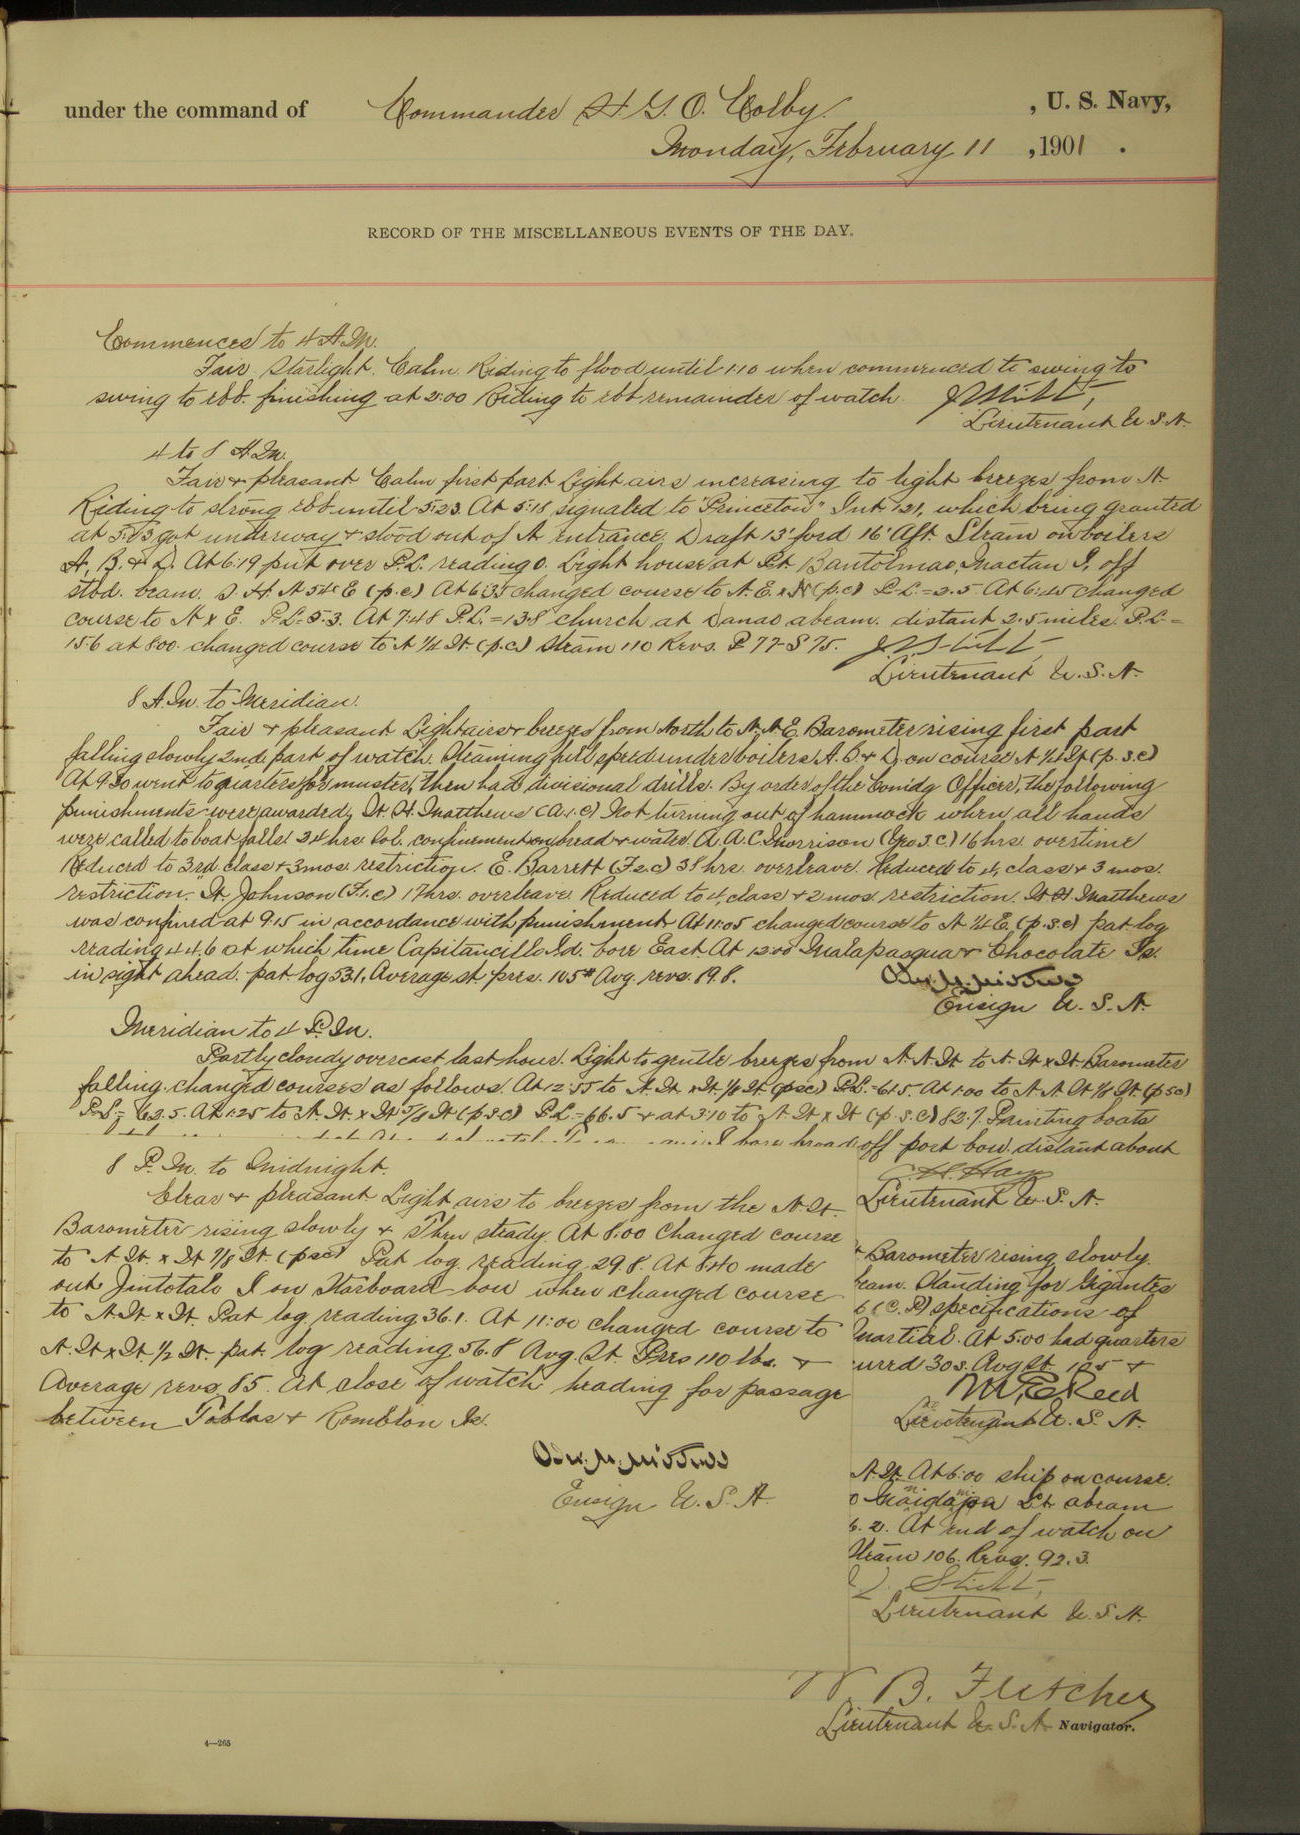 under the command of Commander H. G. O. Colby , U. S. Navy,
Monday, February 11 , 1901 .
RECORD OF THE MISCELLANEOUS EVENTS OF THE DAY.
Commences to 4 A.M.
Fair Starlight. Calm. Riding to flood until 1:10 when commenced to swing to
swing to ebb. finishing at 2:00 Riding to ebb remainder of watch.
Lieutenant U.S.N.
4 to 8 A.M.
Fair & pleasant Calm first part Light airs increasing to light breezes from N.
Riding to strong ebb until 5:23. At 5:18 signaled to "Princeton" Int. 121, which being granted
at got underway & stood out of N. entrance. Draft 13' for'd 16' Aft. Steam on boilers
A, B. & D. At 6:19 put over P.L. reading 0. Light house at Pt. Bantolinao, Mactan I, off
stbd. beam. N 54 E (p.c) At 6:35 changed course to N. E. x N (p.c) P.L. = 2.5 At 6:45 changed
course to N x E. P.L. = 5.3. At 7:48 P.L. = 13.8 church at Danao abeam. distant 2.5 miles. P.L =
15.6 at 8:00. changed course to N 1/4 W. (p.c) Steam 110 Revs. P 77 - S 75.
Lieutenant U.S.N.
8 A.M. to Meridian.
Fair & pleasant Light airs & breezes from North to N.N.E. Barometer rising first part
falling slowly 2nd part of watch. Steaming full speed under boilers A. B & D, on course N 1/4 W (p.s.c)
At 9:30 went to quarters for muster, then had divisional drills. By order of the Com'dg Officer, the following
punishments were awarded, W. H. Matthews (A.1.c) Not turning out of hammock when all hands
were called to boat falls. 24 hrs. Sol. confinement on bread & water. A. A. C. Morrison (Yeo 3.c.) 16 hrs. overtime
Reduced to 3rd class & 3 mos. restriction. E. Barrett (F2c) 38 hrs. overleave. Reduced to 4, class & 3 mos.
restriction. W. Johnson (F.1.c) 17 hrs. overleave. Reduced to 4, class & 2 mos. restriction. W. H. Matthews
was confined at 9:15 in accordance with punishment. At 11:05 changed course to N. 1/4 E. (p.s.c) pat. log
reading 44.6 at which time Capitancillo Id. bore East. At 12:00 Malapasqua & Chocolate Is.
in sight ahead. pat. log 53.1, Average st. pres. 105# Avg. revs. 79.8.
Ensign U. S. N.
Meridian to 4 P.M.
Partly cloudy overcast last hour. Light to gentle breezes from N.N.W. to N.W. x W. Barometer
falling. changed courses as follows. At 12:55 to N.W. x W. 1/8 W. (psc) P.L. = 61.5. At 1:00 to N.N.W 1/8 W. (psc)
P.L. = 62.5. At 1:25 to N.W. x W 7/8 W (p.s.c) P.L. = 66.5 & at 3:10 to N.W x W (p.s.c) 82.7. Painting boats
bore broad off port bow. distant about
C. H. Hay
Lieutenant U.S.N.
8 P.M. to Midnight.
Clear & pleasant Light airs to breezes from the N.W.
Barometer rising slowly & then steady. At 8:00 changed course
to N.W. x W 7/8 W. (psc) Pat. log. reading 29.8. At 8:40 made
out Jintotolo I on Starboard bow when changed course
to N.W. x W. Pat. log. reading 36.1. At 11:00 changed course to
N.W x W. 1/2 W. pat. log reading 56.8 Avg. St. Pres 110 lbs. &
Average revs 85. At close of watch heading for passage
between Tablas & Romblon Is.
Ensign U. S. N.
& Barometer rising slowly.
beam. Standing for Gigantes
(C. P.) specifications of
Martial. At 5:00 had quarters
303. Avg St. 105 &
M. E. Reed
Lieutenant U. S. N.
N.W. At 6:00 ship on course.
Pt. abeam
6. 2. At end of watch on
Steam 106. Revs. 92.3.
Lieutenant U.S.N.
W. B. Fletcher
Lieutenant U.S.N. Navigator.
4—265